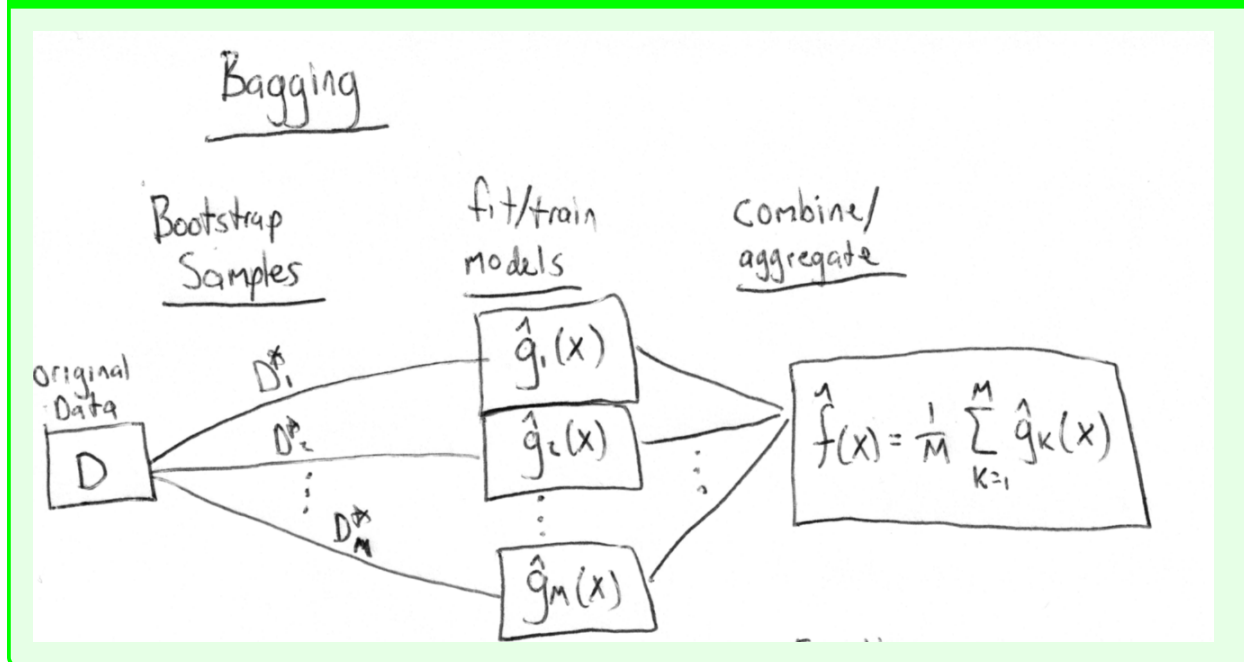 Bagging
Bootstrap
Samples
fit/train
models
combine/
aggregate
original
Data
D
D₁*
D₂*
⋮
D_M*
ĝ₁(x)
ĝ₂(x)
⋮
ĝ_M(x)
⋮
f̂(x) = 1/M ∑_{K=1}^{M} ĝ_K(x)